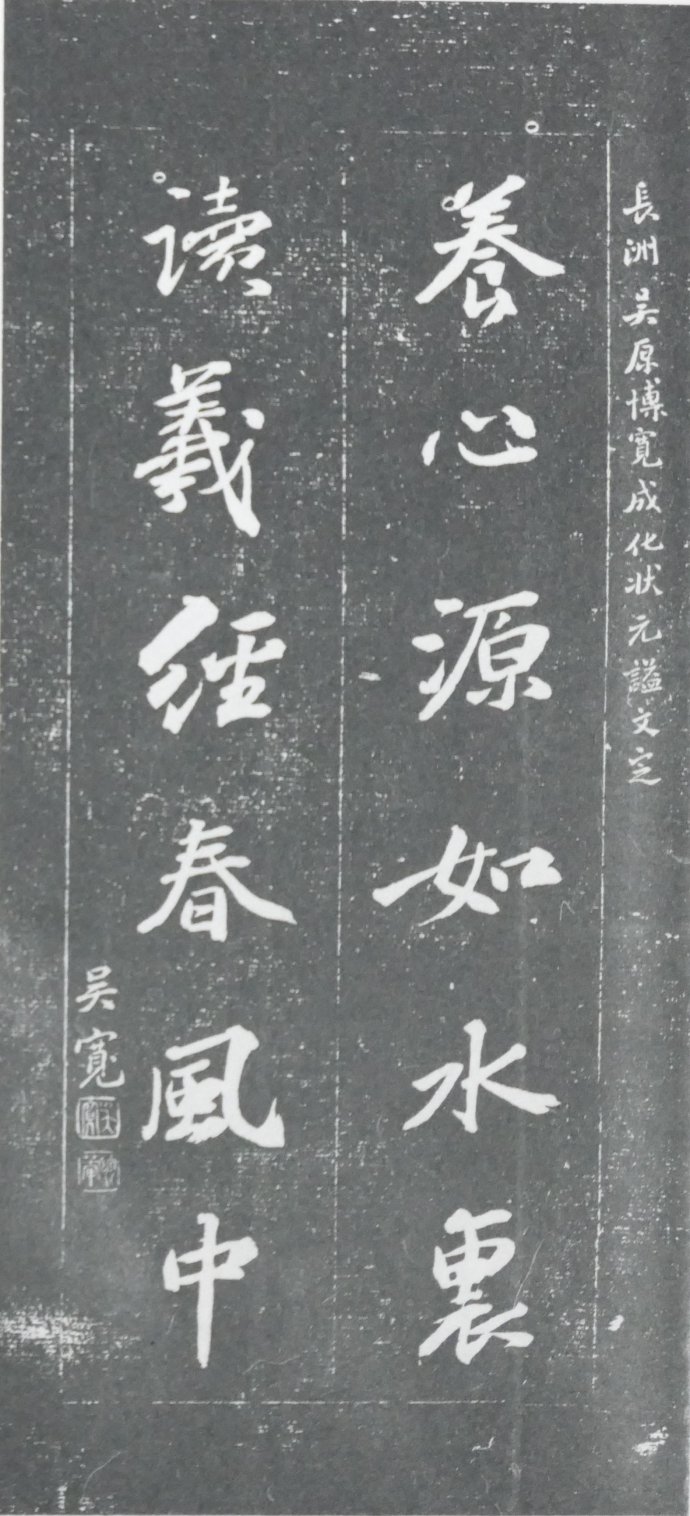 長洲吴原博寬成化狀元謚文定
養心源如水裏
讀羲經春風中
吴寬